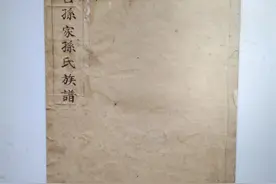 孫家孫氏族譜